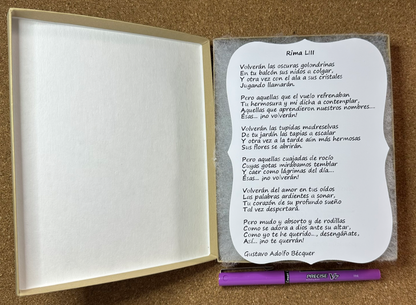 Rima LIII
Volverán las oscuras golondrinas
En tu balcón sus nidos a colgar,
Y otra vez con el ala a sus cristales
Jugando llamarán.
Pero aquellas que el vuelo refrenaban
Tu hermosura y mi dicha a contemplar,
Aquellas que aprendieron nuestros nombres...
Ésas... ¡no volverán!
Volverán las tupidas madreselvas
De tu jardín las tapias a escalar
Y otra vez a la tarde aún más hermosas
Sus flores se abrirán.
Pero aquellas cuajadas de rocío
Cuyas gotas mirábamos temblar
Y caer como lágrimas del día...
Ésas... ¡no volverán!
Volverán del amor en tus oídos
Las palabras ardientes a sonar,
Tu corazón de su profundo sueño
Tal vez despertará.
Pero mudo y absorto y de rodillas
Como se adora a dios ante su altar,
Como yo te he querido..., desengáñate,
Así... ¡no te querrán!
Gustavo Adolfo Bécquer
PRECISE V5